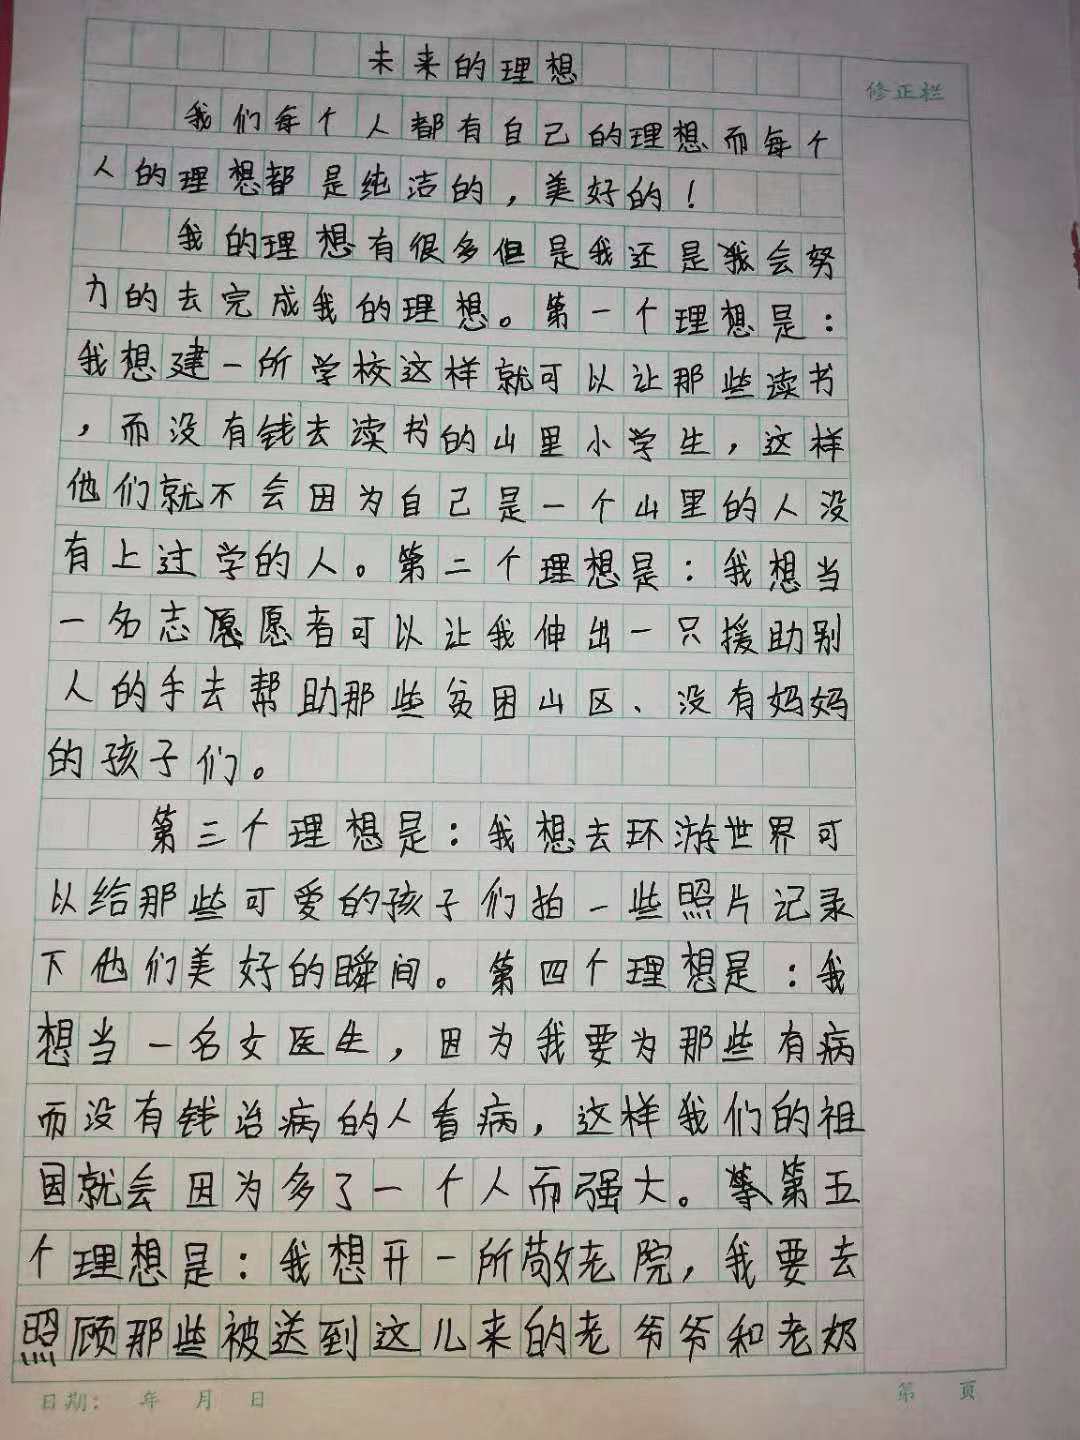 未来的理想
修正栏
我们每个人都有自己的理想而每个
人的理想都是纯洁的，美好的！
我的理想有很多但是我还是我会努
力的去完成我的理想。第一个理想是：
我想建一所学校这样就可以让那些读书
，而没有钱去读书的山里小学生，这样
他们就不会因为自己是一个山里的人没
有上过学的人。第二个理想是：我想当
一名志愿愿者可以让我伸出一只援助别
人的手去帮助那些贫困山区、没有妈妈
的孩子们。
第三个理想是：我想去环游世界可
以给那些可爱的孩子们拍一些照片记录
下他们美好的瞬间。第四个理想是：我
想当一名女医生，因为我要为那些有病
而没有钱治病的人看病，这样我们的祖
国就会因为多了一个人而强大。第五
个理想是：我想开一所敬老院，我要去
照顾那些被送到这儿来的老爷爷和老奶
日期： 年 月 日
第 页